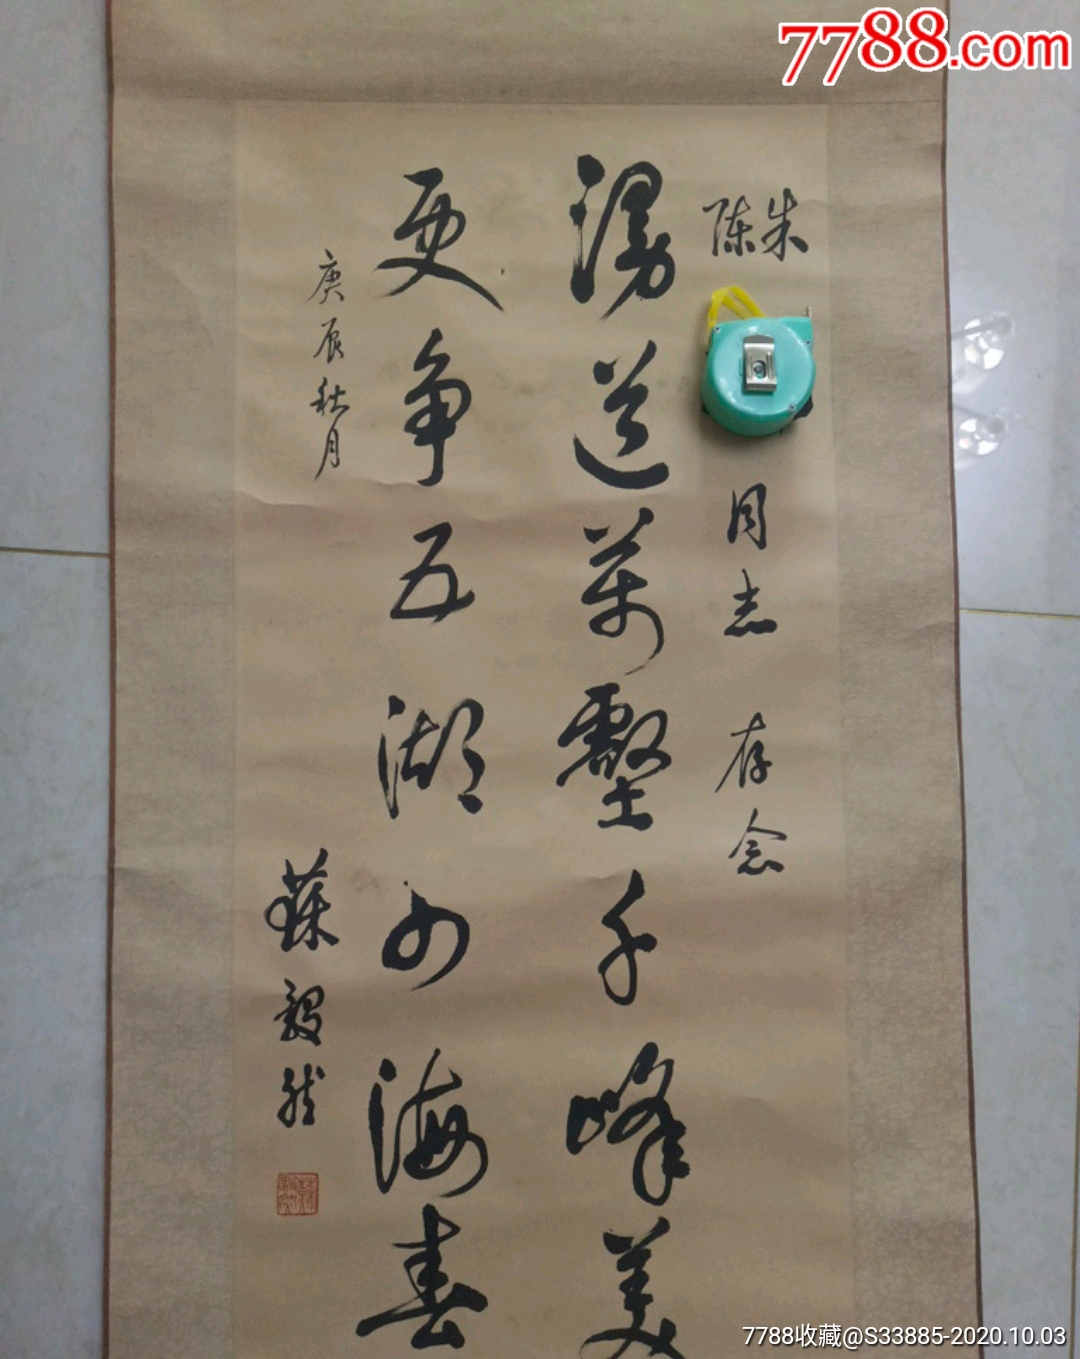 7788.com
朱
陈
同志 存念
漫道万壑千峰美
更争五湖四海春
庚辰秋月
苏毅然
7788收藏@S33885-2020.10.03